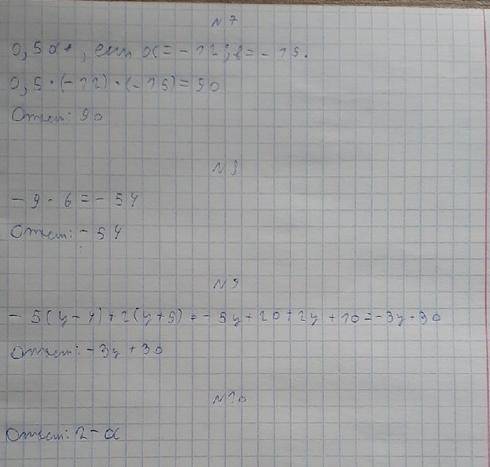 N 7
0,5ab, если a = - 12; b = - 15.
0,5 · (- 12) · (- 15) = 90
Ответ: 90
N 8
- 9 · 6 = - 54
Ответ: - 54
N 9
- 5(y - 4) + 2(y + 5) = - 5y + 20 + 2y + 10 = - 3y + 30
Ответ: - 3y + 30
N 10
Ответ: 2 - a